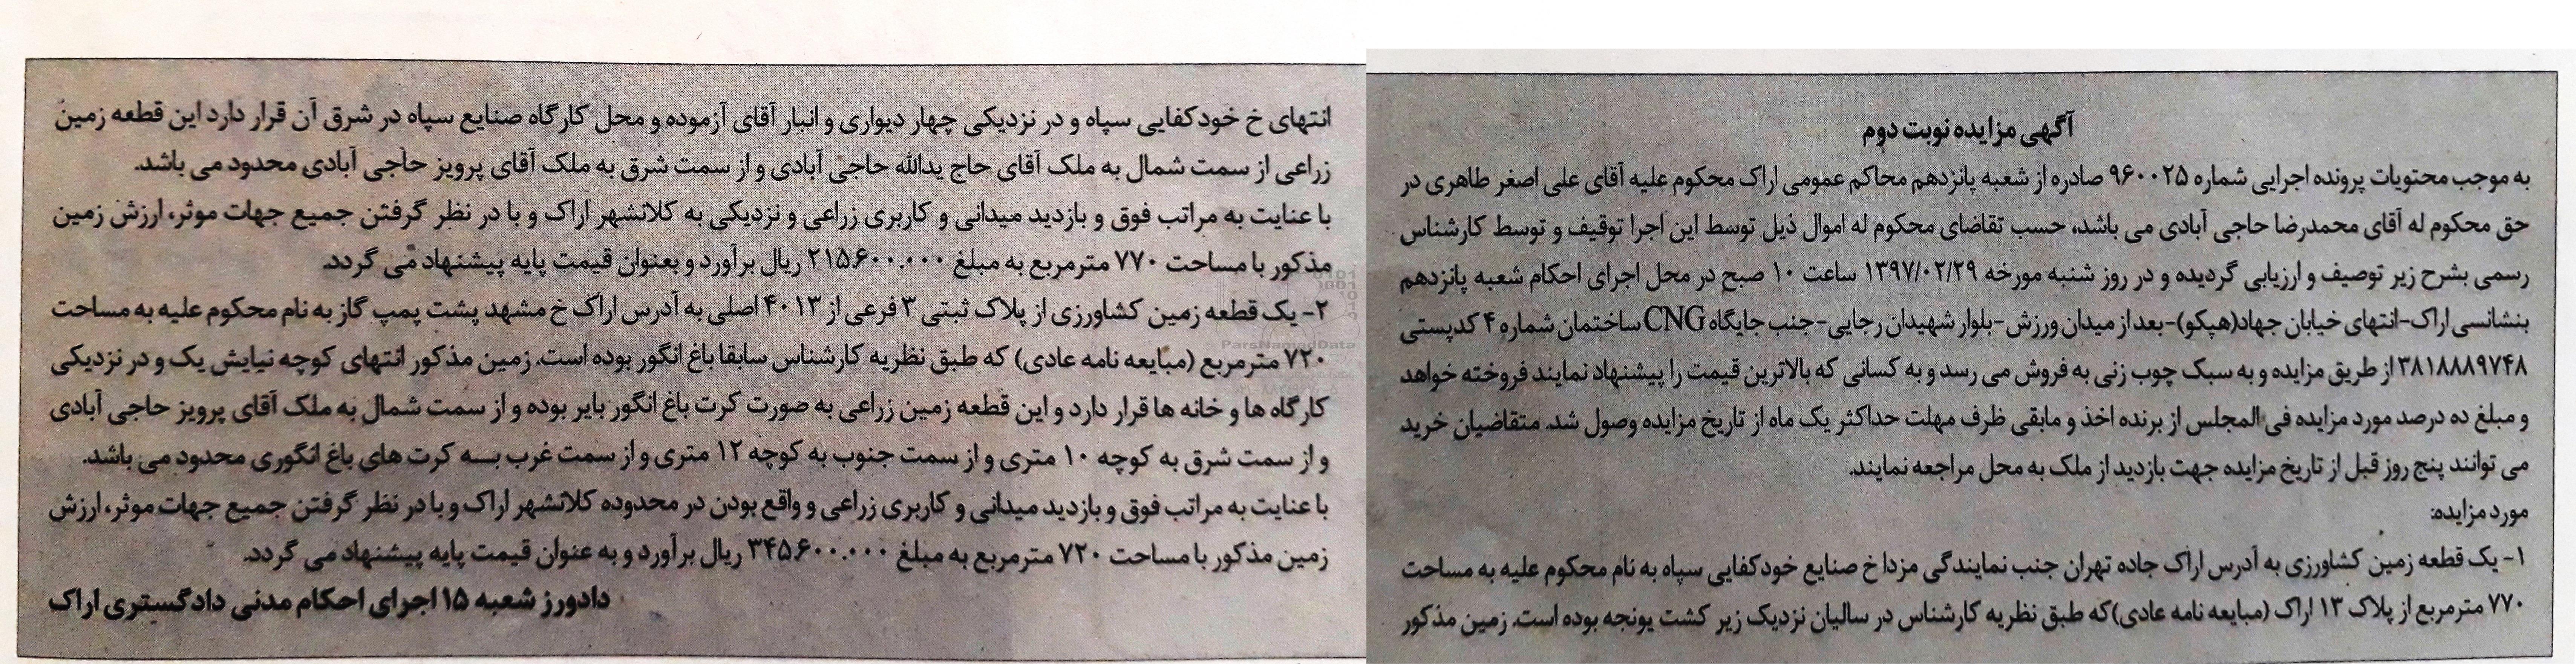 آگهی مزایده نوبت دوم
به موجب محتویات پرونده اجرایی شماره ۹۶۰۰۲۵ صادره از شعبه پانزدهم محاکم عمومی اراک محکوم علیه آقای علی اصغر طاهری در
حق محکوم له آقای محمدرضا حاجی آبادی می باشد، حسب تقاضای محکوم له اموال ذیل توسط این اجرا توقیف و توسط کارشناس
رسمی بشرح زیر توصیف و ارزیابی گردیده و در روز شنبه مورخه ۱۳۹۷/۰۲/۲۹ ساعت ۱۰ صبح در محل اجرای احکام شعبه پانزدهم
بنشانسی اراک-انتهای خیابان جهاد(هپکو)-بعد از میدان ورزش-بلوار شهیدان رجایی-جنب جایگاه CNG ساختمان شماره ۴ کدپستی
۳۸۱۸۸۸۹۷۴۸ از طریق مزایده و به سبک چوب زنی به فروش می رسد و به کسانی که بالاترین قیمت را پیشنهاد نمایند فروخته خواهد
و مبلغ ده درصد مورد مزایده فی المجلس از برنده اخذ و مابقی ظرف مهلت حداکثر یک ماه از تاریخ مزایده وصول شد. متقاضیان خرید
می توانند پنج روز قبل از تاریخ مزایده جهت بازدید از ملک به محل مراجعه نمایند.
مورد مزایده:
۱- یک قطعه زمین کشاورزی به آدرس اراک جاده تهران جنب نمایندگی مزدا خ صنایع خودکفایی سپاه به نام محکوم علیه به مساحت
۷۷۰ مترمربع از پلاک ۱۳ اراک (مبایعه نامه عادی)که طبق نظریه کارشناس در سالیان نزدیک زیر کشت یونجه بوده است. زمین مذکور
انتهای خ خودکفایی سپاه و در نزدیکی چهار دیواری و انبار آقای آزموده و محل کارگاه صنایع سپاه در شرق آن قرار دارد این قطعه زمین
زراعی از سمت شمال به ملک آقای حاج یدالله حاجی آبادی و از سمت شرق به ملک آقای پرویز حاجی آبادی محدود می باشد.
با عنایت به مراتب فوق و بازدید میدانی و کاربری زراعی و نزدیکی به کلانشهر اراک و با در نظر گرفتن جمیع جهات موثر، ارزش زمین
مذکور با مساحت ۷۷۰ مترمربع به مبلغ ۲۱۵.۶۰۰.۰۰۰ ریال برآورد و بعنوان قیمت پایه پیشنهاد می گردد.
۲- یک قطعه زمین کشاورزی از پلاک ثبتی ۳ فرعی از ۴۰۱۳ اصلی به آدرس اراک خ مشهد پشت پمپ گاز به نام محکوم علیه به مساحت
۷۲۰ مترمربع (مبایعه نامه عادی) که طبق نظریه کارشناس سابقا باغ انگور بوده است. زمین مذکور انتهای کوچه نیایش یک و در نزدیکی
کارگاه ها و خانه ها قرار دارد و این قطعه زمین زراعی به صورت کرت باغ انگور بایر بوده و از سمت شمال به ملک آقای پرویز حاجی آبادی
و از سمت شرق به کوچه ۱۰ متری و از سمت جنوب به کوچه ۱۲ متری و از سمت غرب به کرت های باغ انگوری محدود می باشد.
با عنایت به مراتب فوق و بازدید میدانی و کاربری زراعی و واقع بودن در محدوده کلانشهر اراک و با در نظر گرفتن جمیع جهات موثر، ارزش
زمین مذکور با مساحت ۷۲۰ مترمربع به مبلغ ۳۴۵.۶۰۰.۰۰۰ ریال برآورد و به عنوان قیمت پایه پیشنهاد می گردد.
دادورز شعبه ۱۵ اجرای احکام مدنی دادگستری اراک
ParsNamadData